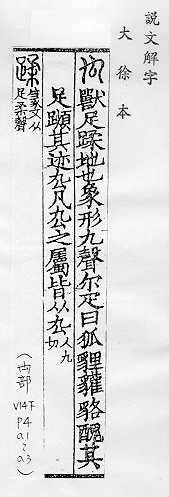 説文解字
大徐本
禸獸足蹂地也象形九聲尔疋曰狐貍貛貉醜其
足蹞其迹厹凡厹之屬皆从厹人九切
蹂篆文从足柔聲
(禸部 V14下 P4 a.1~a.3)